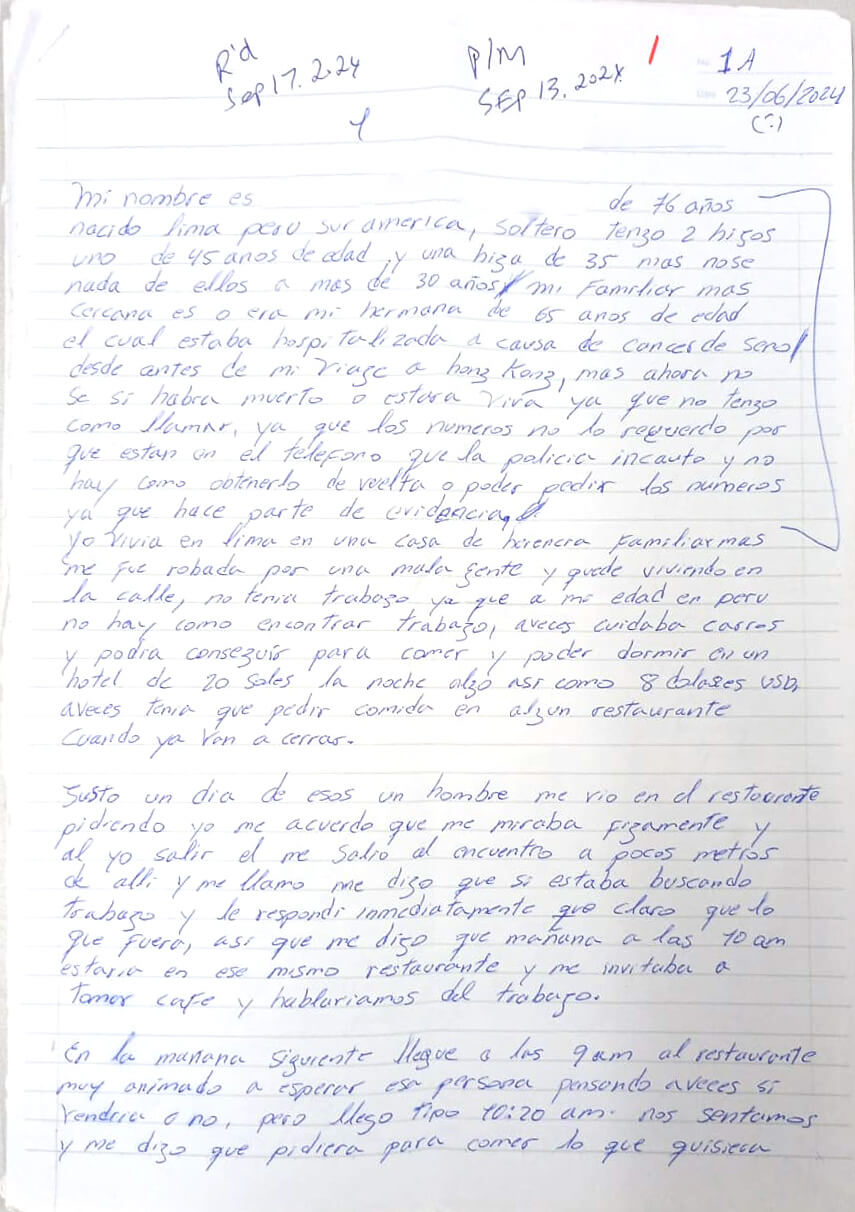 R'd
Sep 17. 2.24
P/M
SEP 13. 202X.
1
No. 1A
23/06/2024
(:)
Mi nombre es de 76 años
nacido lima peru sur america, soltero tenzo 2 higos
uno de 45 anos de edad y una higa de 35 mas nose
nada de ellos a mas de 30 años mi Familiar mas
cercana es o era mi hermana de 65 anos de edad
el cual estaba hospitalizada a causa de cancer de seno
desde antes de mi viage a honz Konz, mas ahora no
se si habra muerto o estara viva ya que no tenzo
como llamar, ya que los numeros no lo recuerdo por
que estan en el telefono que la policia incauto y no
hay como obtenerlo de vuelta o poder pedir los numeros
ya que hace parte de evidencia,
yo vivia en lima en una casa de herencia Familiar mas
me fue robada por una mala gente y quede viviendo en
la calle, no tenia trabazo ya que a mi edad en peru
no hay como encontrar trabazo, aveces cuidaba carros
y podia consezuir para comer y poder dormir en un
hotel de 20 soles la noche alzo asi como 8 dolares USD,
aveces tenia que pedir comida en alzun restaurante
cuando ya van a cerrar.
Justo un dia de esos un hombre me vio en el restaurante
pidiendo yo me acuerdo que me miraba fizamente y
al yo salir el me salio al encuentro a pocos metros
de alli y me llamo me dizo que si estaba buscando
trabazo y le respondi inmediatamente que claro que lo
que fuera, asi que me dizo que mañana a las 10 am
estaria en ese mismo restaurante y me invitaba a
tomar cafe y hablariamos del trabazo.
En la mañana siguiente llegue a las 9am al restaurante
muy animado a esperar esa persona pensando aveces si
vendria o no, pero llego tipo 10:20 am. nos sentamos
y me dizo que pidiera para comer lo que quisiera